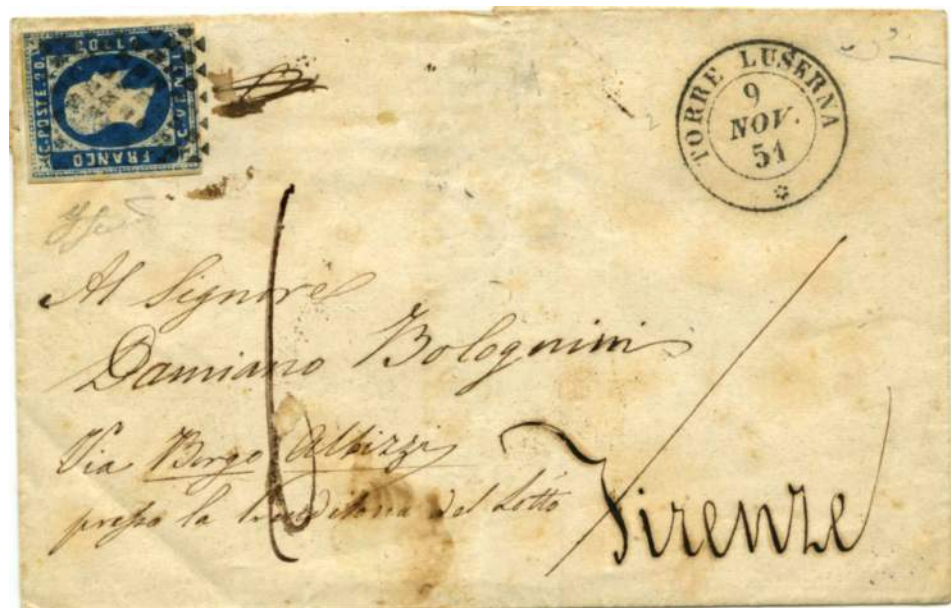 C. POSTE. 20.
C. VENTI
FRANCO
TORRE LUSERNA
9
NOV.
51
6
Al Signore
Damiano Bolognini
Via Borgo Albizzi
presso la del Lotto
Firenze